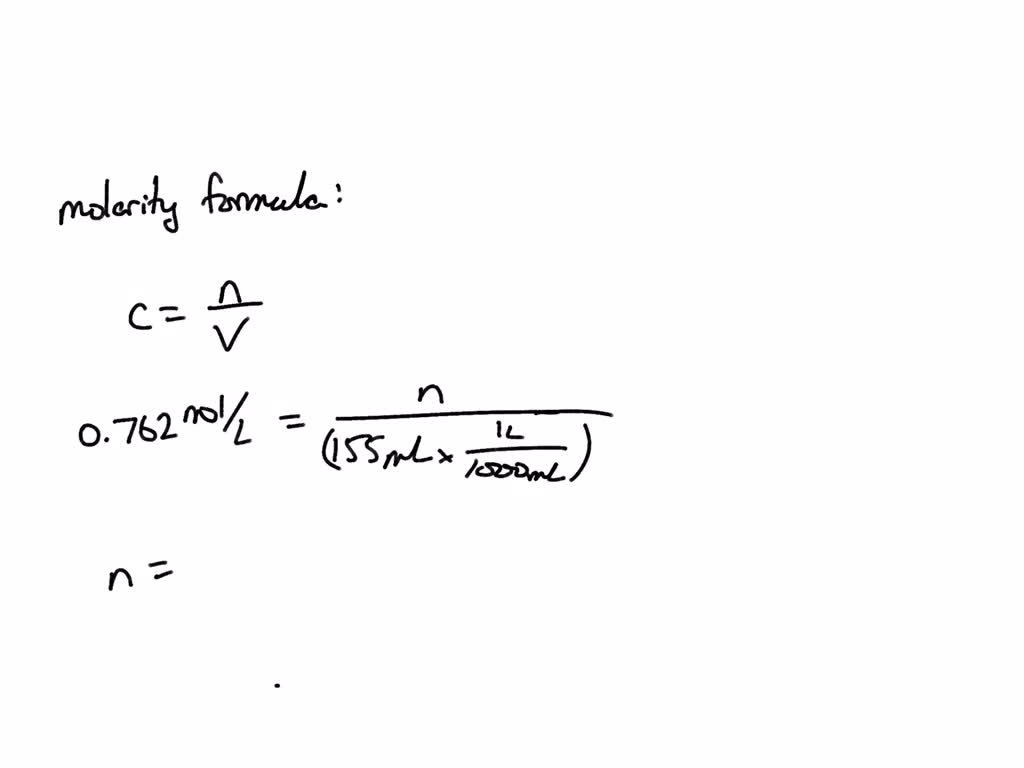 molarity formula:
c = n/V
0.762 mol/L = n/(155mL × 1L/1000mL)
n =